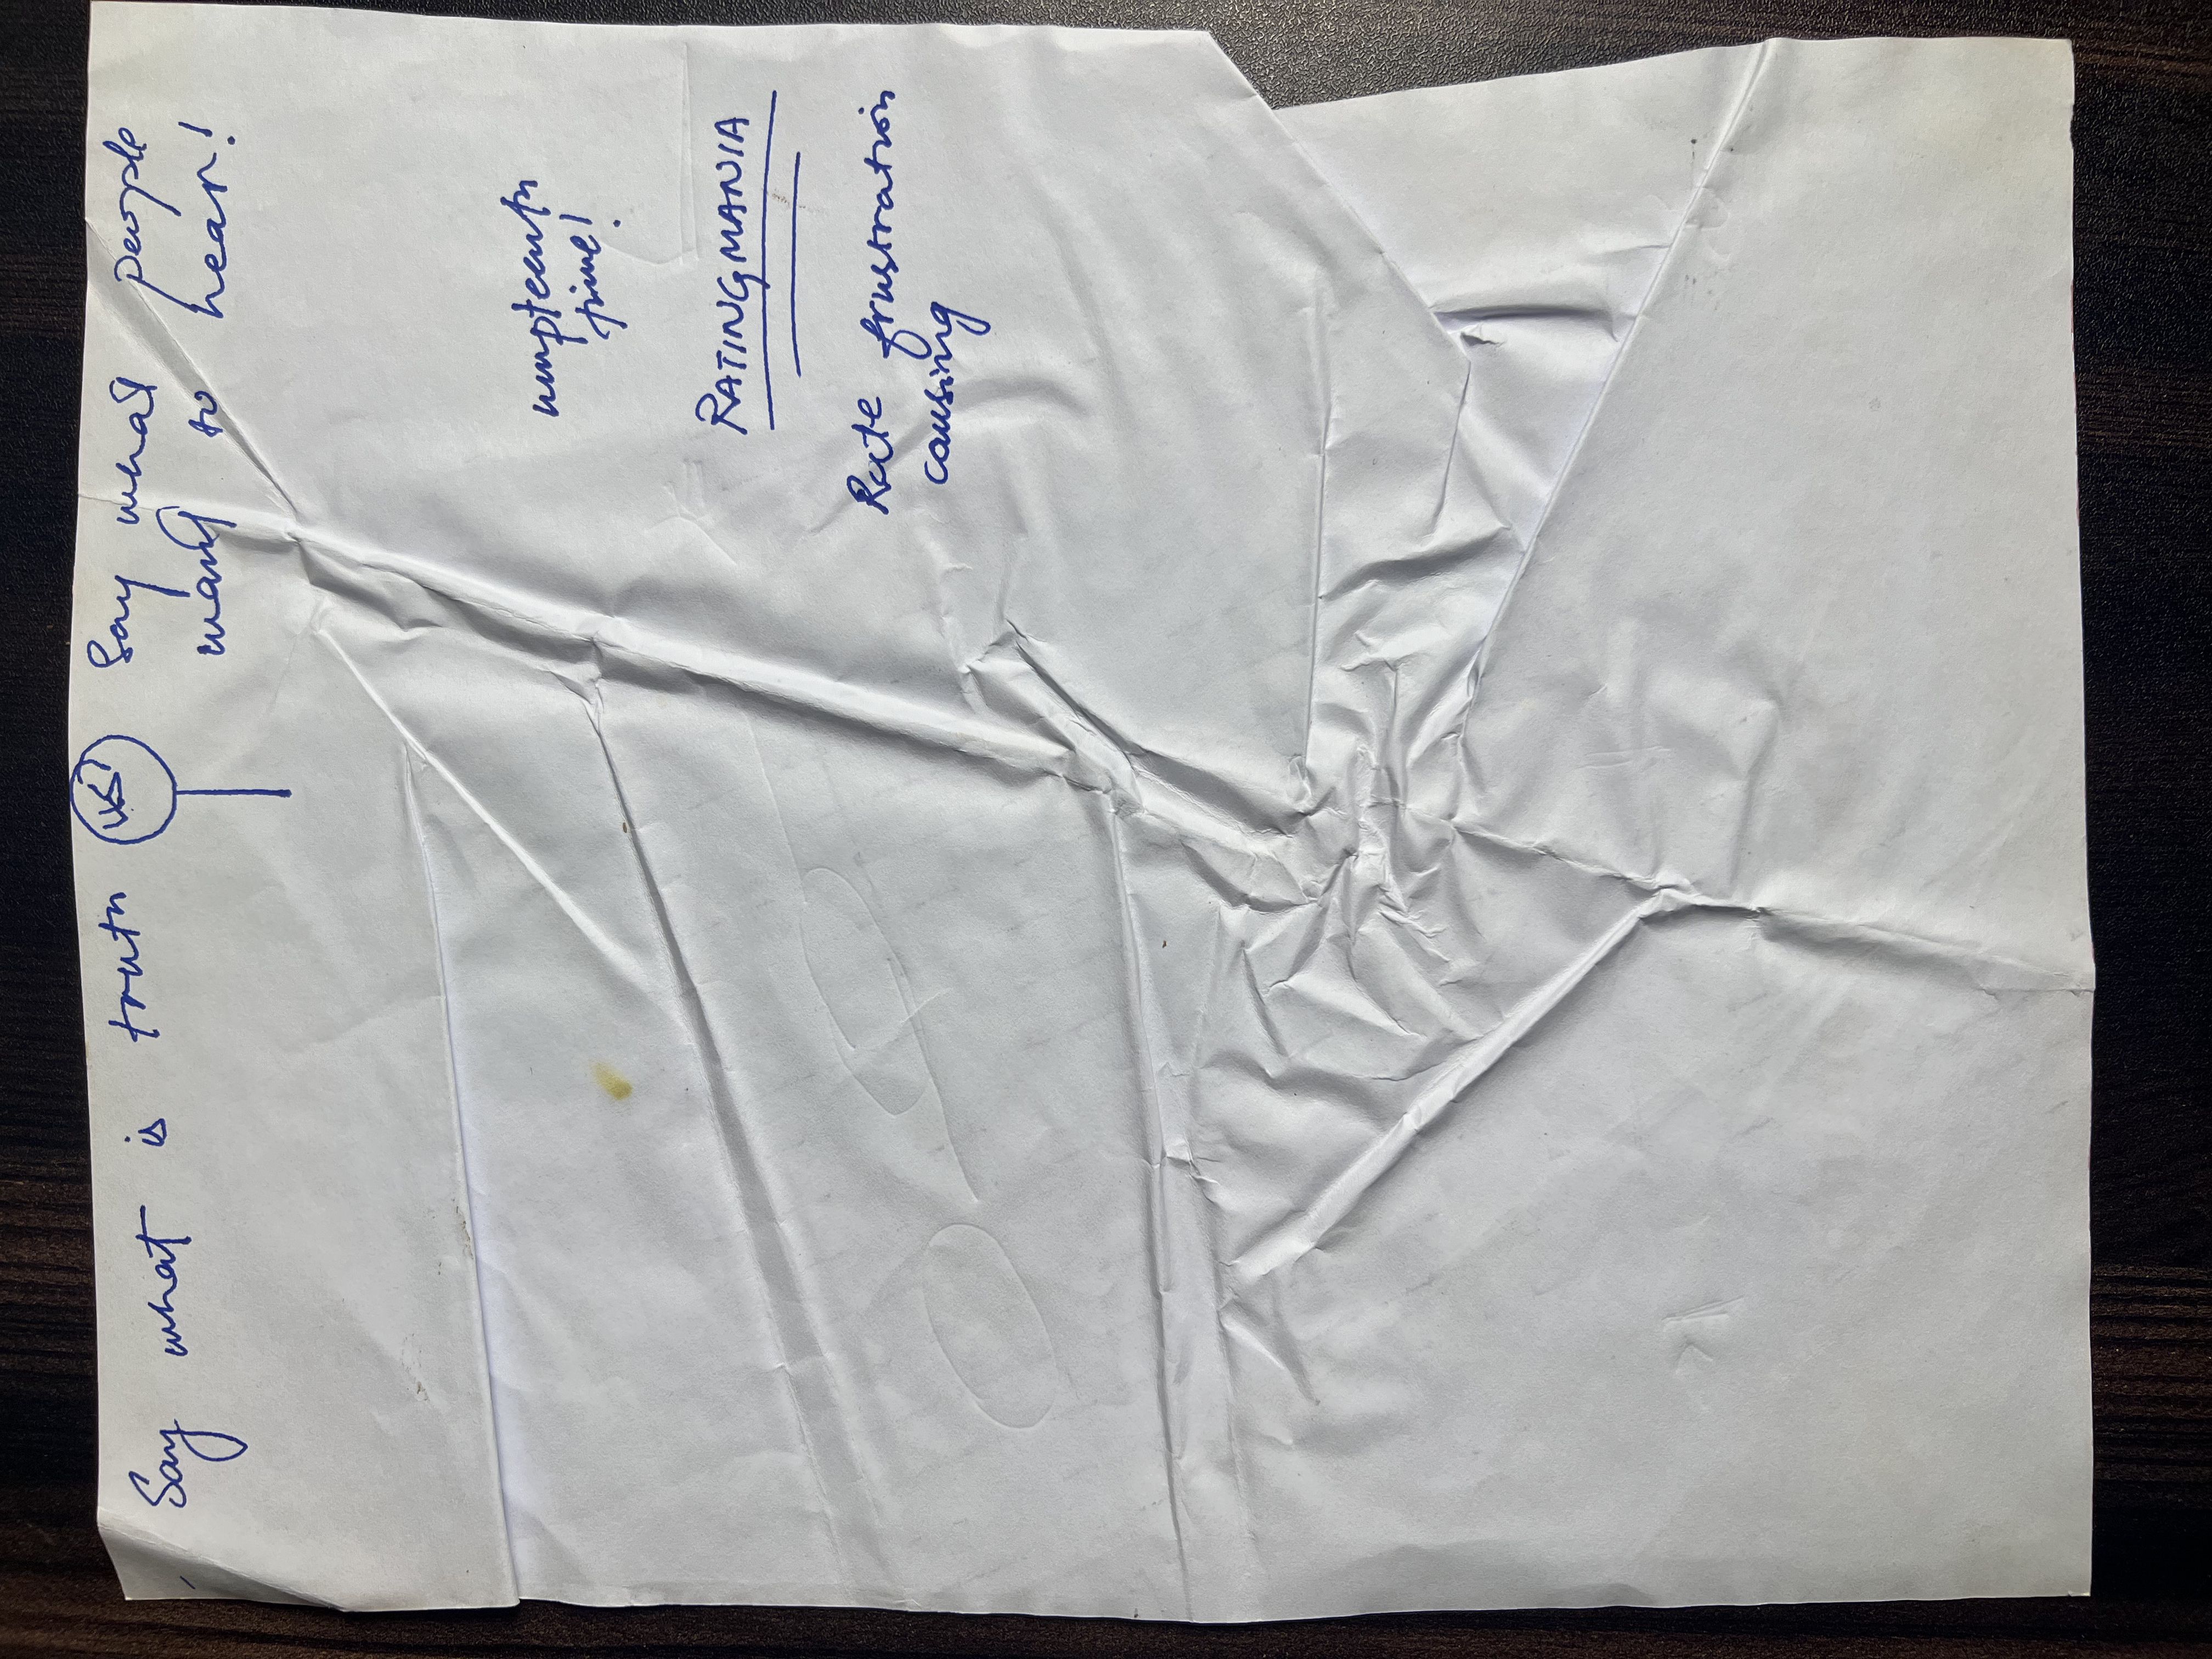 Say what is truth VS Say what people
want to hear!
umpteenth
time!
RATINGMANIA
Rate frustration
causing